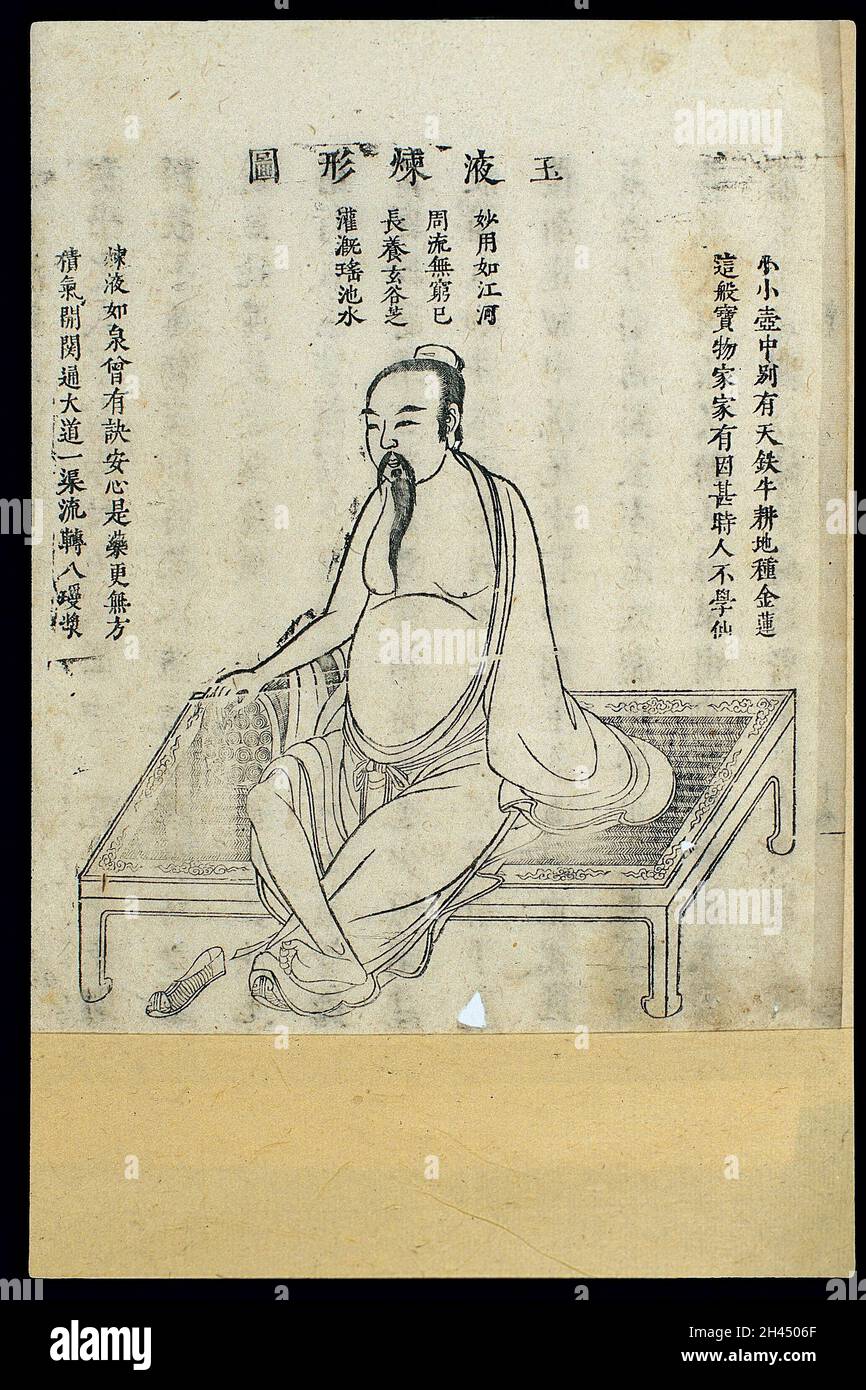 玉液煉形圖
妙用如江河
周流無窮已
長養玄谷芝
灌溉瑤池水
小小壺中別有天鉄牛耕地種金蓮
這般寶物家家有因甚時人不學仙
煉液如泉曾有訣安心是藥更無方
積氣開関通大道一渠流轉八瓊漿
alamy
Image ID: 2H4506F
www.alamy.com